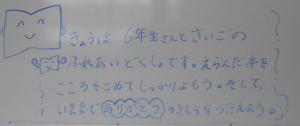 きょうは 6年生さんとさいごの
ふれあいどくしょです。えらんだ本を
こころをこめてしっかりよもう。そして、
いままでありがとうのきもちをつたえよう。